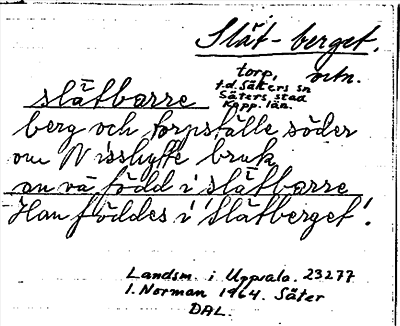 Slät-berget.
torp, ortn.
f.d. Säters sn
Säters stad
Kopp. län.
slätbarre
berg och torpställe söder
om Nisshytte bruk
an vа född i slätbarre
Han föddes i 'Slätberget'.
Landsm. i Uppsala. 23277
I. Norman 1964. Säter
DAL.